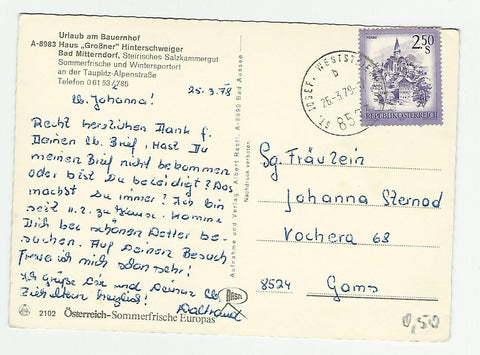 Urlaub am Bauernhof
A-8983 Haus „Großner" Hinterschweiger
Bad Mitterndorf, Steirisches Salzkammergut
Sommerfrische und Wintersportort
an der Tauplitz-Alpenstraße
Telefon 0 61 53/785
25.3.78
Lb. Johanna!
Recht herzlichen Dank f.
Deinen lb. Brief. Hast Du
meinen Brief nicht bekommen
oder bist Du beleidigt? Was
machst Du immer? Ich bin
seit 11.2. zu Hause. Komme
Dich bei schönen Wetter be-
suchen. Auf Deinen Besuch
freue ich mich schon sehr!
Ich grüße Dich und Deinen lb.
Eltern herzlich!
Waltraud
2102 Österreich-Sommerfrische Europas
Aufnahme und Verlag: Albert Rastl, A-8990 Bad Aussee
Nachdruck verboten.
RASTL
ST. JOSEF, WESTSTEIERM.
b
26.-3.79-
85
2.50
S
REPUBLIK ÖSTERREICH
Sg. Fräulein
Johanna Sternad
Vochera 68
8524 Gams
0,50